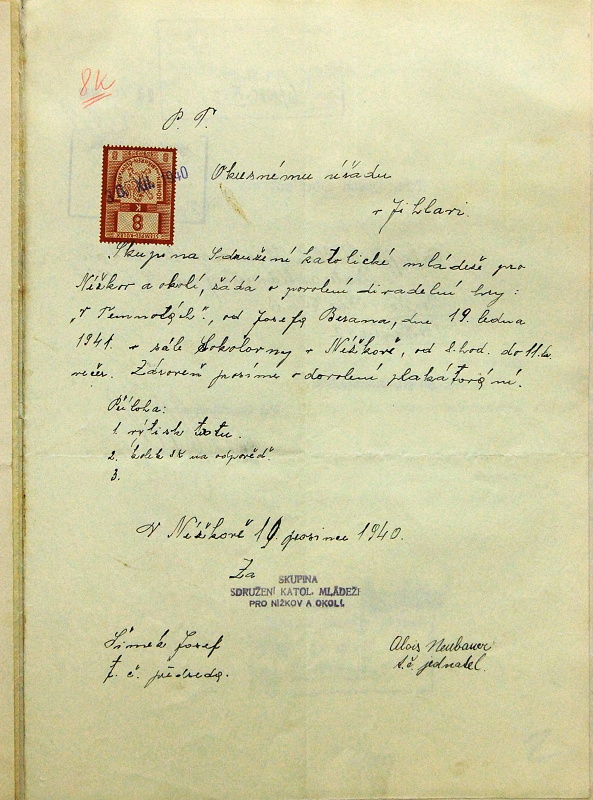 8K
P. T.
30. XII. 1940
8
K
8
Okresnímu úřadu
v Jihlavi.
Skupina Sdružení katolické mládeže pro
Nížkov a okolí, žádá o povolení divadelní hry:
„V Temnotách", od Josefa Besana, dne 19. ledna
1941. v sále Sokolovny v Nížkově, od 8 hod. do 11. h.
večer. Zároveň prosíme o dovolení plakátování.
Příloha:
1. výtisk textu.
2. kolek 3K na odpověď.
3.
V Nížkově 19 prosince 1940.
Za
SKUPINA
SDRUŽENÍ KATOL. MLÁDEŽE
PRO NÍŽKOV A OKOLÍ.
Šimek Josef
t. č. předseda.
Alois Neubauer
t. č. jednatel.